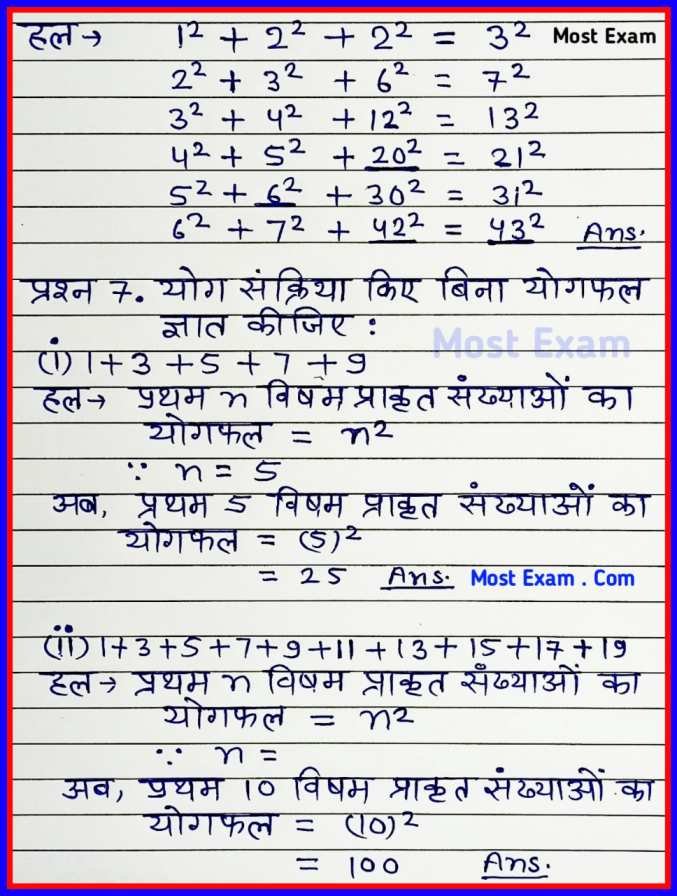 हल → 1² + 2² + 2² = 3² Most Exam
2² + 3² + 6² = 7²
3² + 4² + 12² = 13²
4² + 5² + 20² = 21²
5² + 6² + 30² = 31²
6² + 7² + 42² = 43² Ans.
प्रश्न 7. योग संक्रिया किए बिना योगफल
ज्ञात कीजिए :
Most Exam
(i) 1+3+5+7+9
हल→ प्रथम n विषम प्राकृत संख्याओं का
योगफल = n²
∵ n = 5
अब, प्रथम 5 विषम प्राकृत संख्याओं का
योगफल = (5)²
= 25 Ans. Most Exam . Com
(ii) 1+3+5+7+9+11+13+15+17+19
हल→ प्रथम n विषम प्राकृत संख्याओं का
योगफल = n²
∵ n =
अब, प्रथम 10 विषम प्राकृत संख्याओं का
योगफल = (10)²
= 100 Ans.